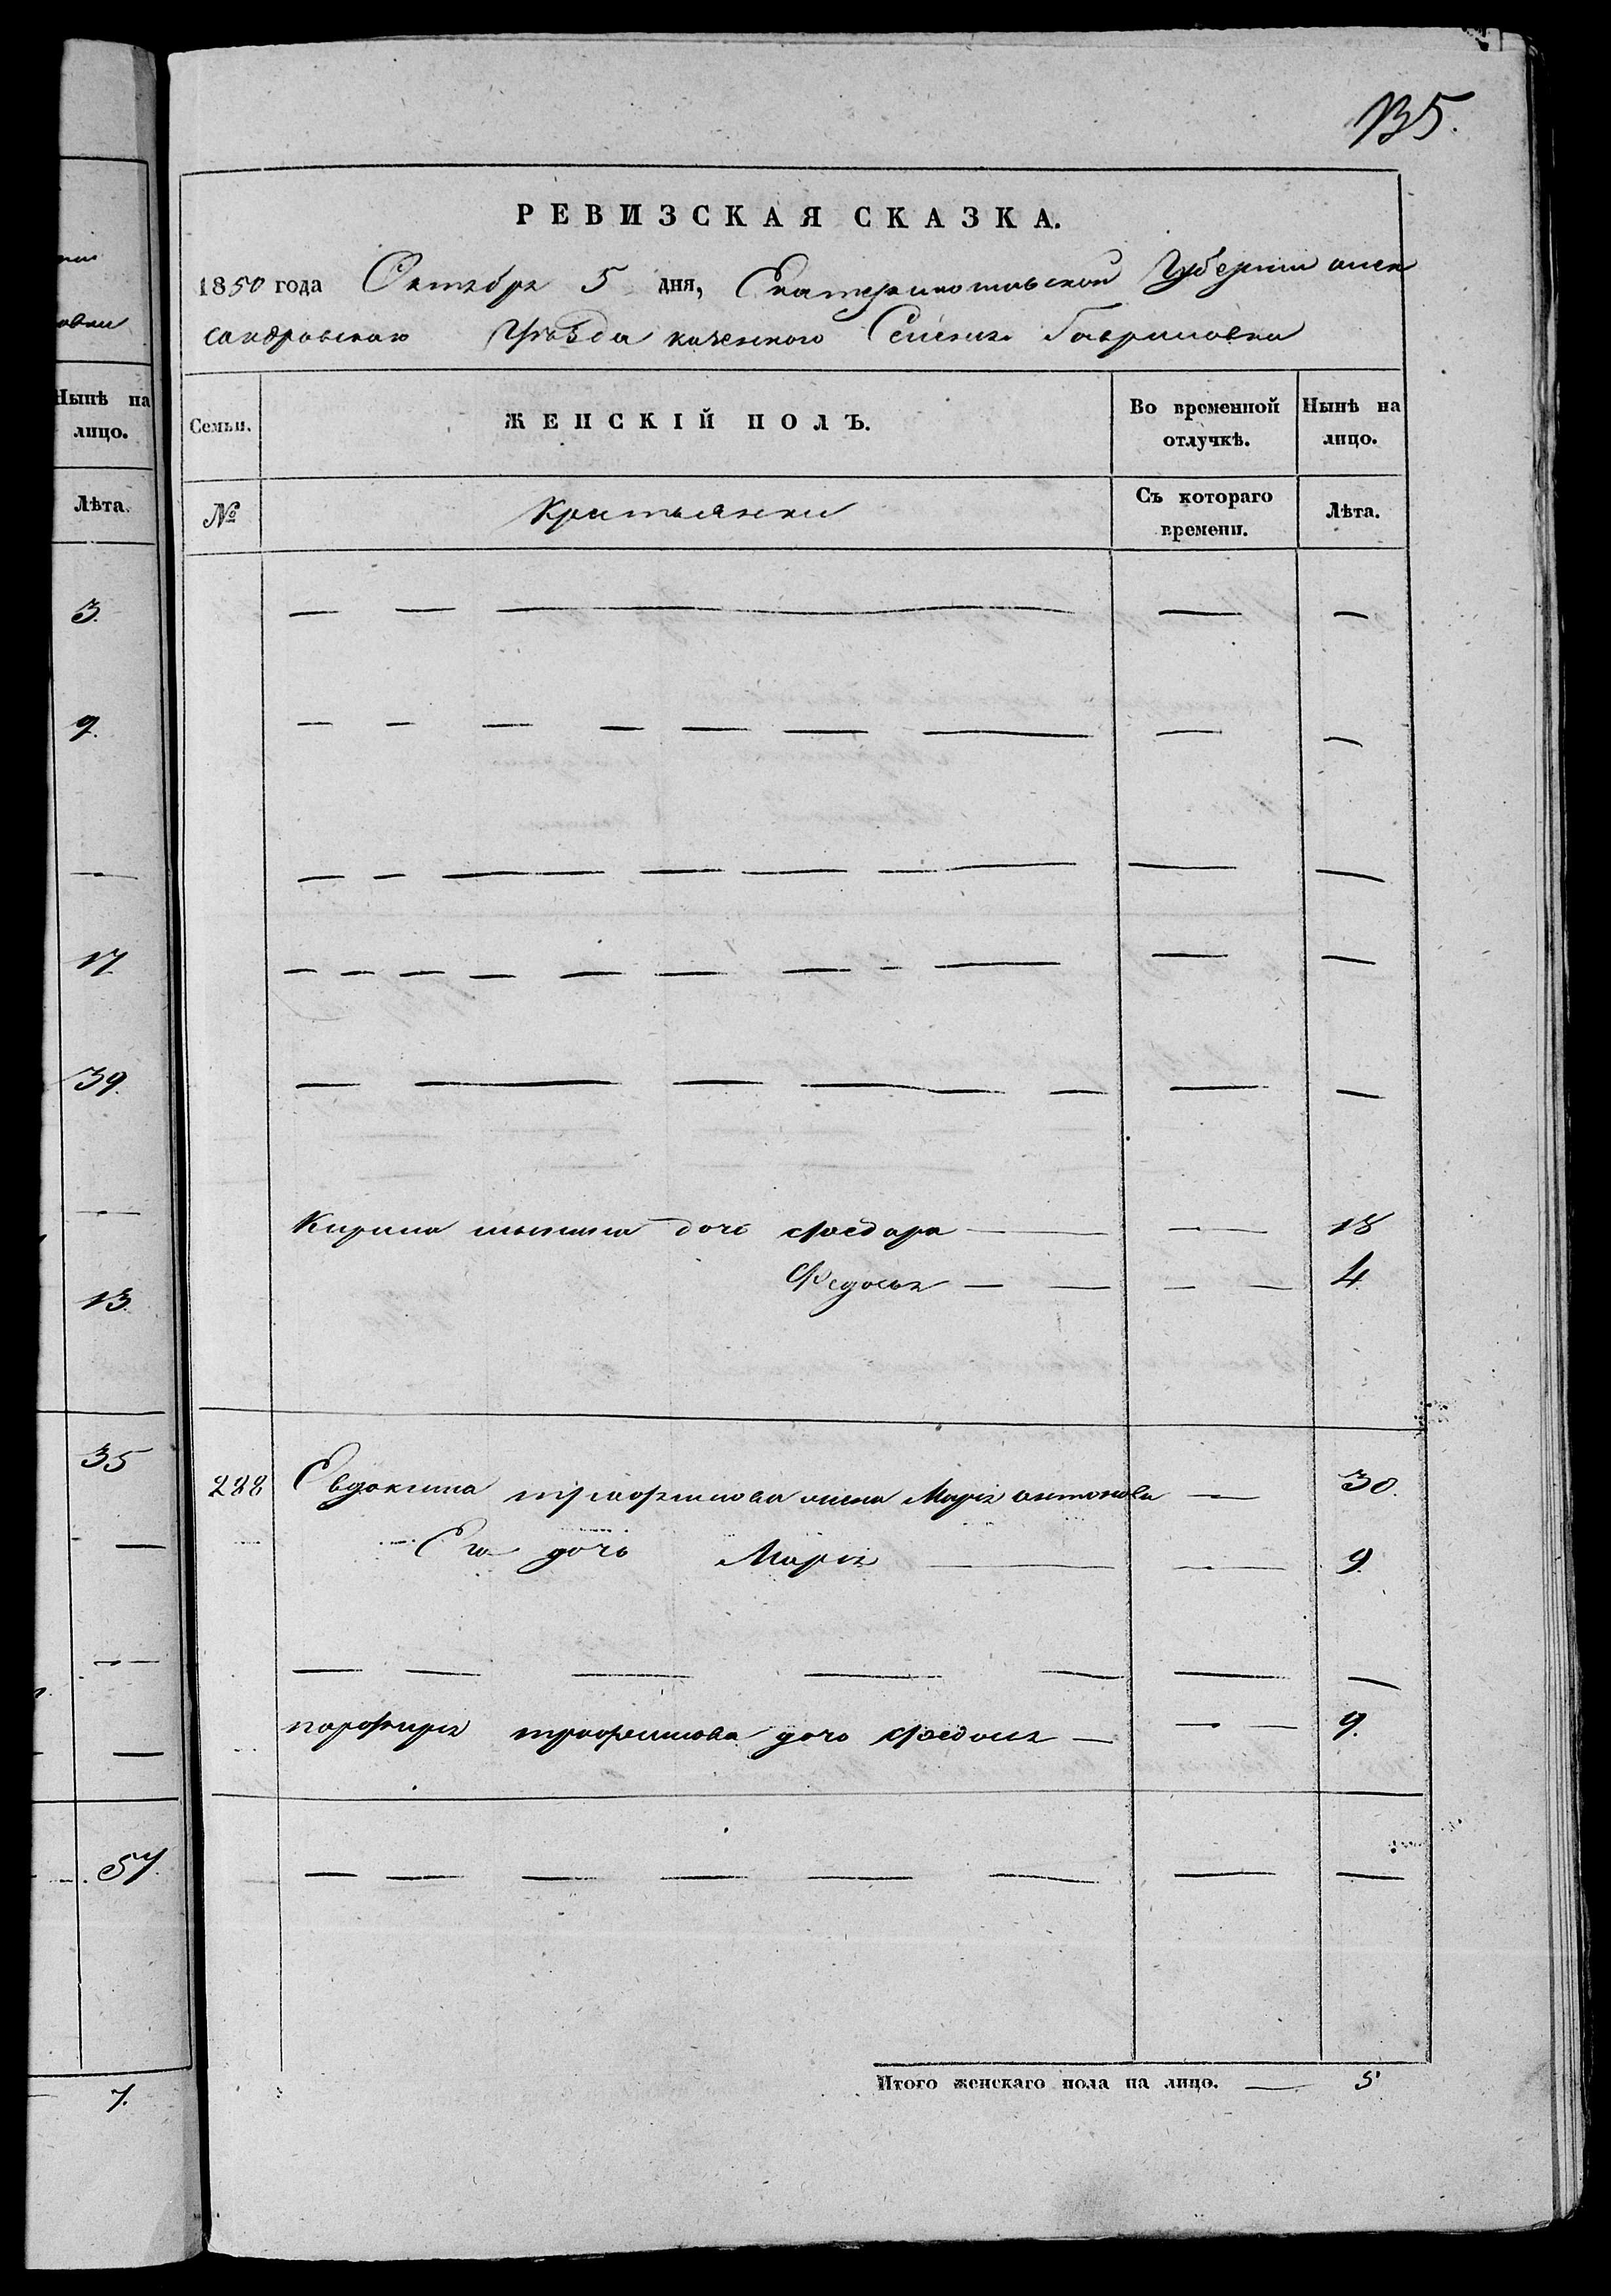 135.
РЕВИЗСКАЯ СКАЗКА.
1850 года Октября 5 дня, Екатеринославской Губернии алек
сандровскаго Уѣзда казенного Селения Гавриловки
Семьи.
ЖЕНСКІЙ ПОЛЪ.
Во временной отлучкѣ.
Нынѣ на лицо.
№
Съ котораго времени.
Лѣта.
— — — — —
— — — — — — — — —
— — — — — — — — —
— — — — — — — — — — —
— — — — — — — —
Кирила дочь федора — — 18
Федосья — — — — 4
228 Евдокима трофимова жена Марія антонова — 30.
Его дочь Марія — — 9.
— — — — — — —
порфирія трофимова дочь — — — 9.
— — — — — — — —
Итого женскаго пола на лицо. — 5
овки
Нынѣ на
лицо.
Лѣта.
3.
9.
—
17
39.
—
13.
35
—
—
—
57.
7.